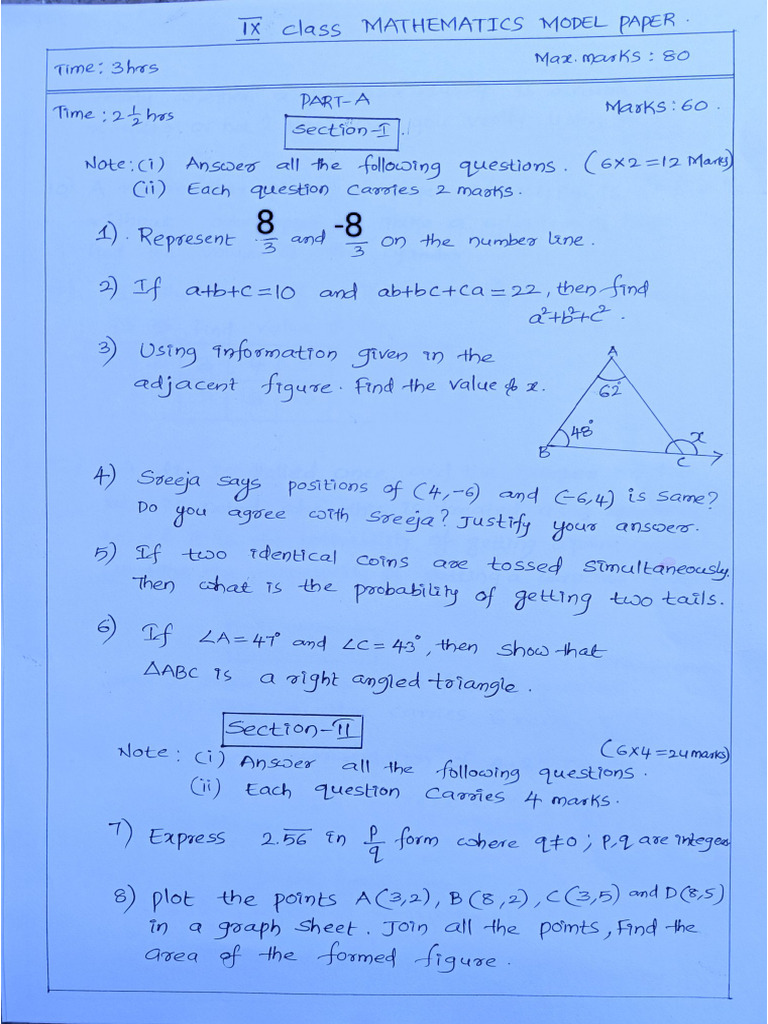 IX class MATHEMATICS MODEL PAPER.
Time: 3hrs
Max. marks: 80
PART-A
Time: 2 1/2 hrs
Marks: 60.
Section-I.
Note: (i) Answer all the following questions. (6×2=12 Marks)
(ii) Each question carries 2 marks.
1). Represent 8/3 and -8/3 on the number line.
2) If a+b+c=10 and ab+bc+ca=22, then find
a²+b²+c².
3) Using information given in the
adjacent figure. Find the value of x.
A
62°
48°
x
B
C
4) Sreeja says positions of (4,-6) and (-6,4) is same?
Do you agree with Sreeja? Justify your answer.
5) If two identical coins are tossed simultaneously.
Then what is the probability of getting two tails.
6) If ∠A=47° and ∠C=43°, then show that
△ABC is a right angled triangle.
Section-II
(6×4=24 marks)
Note: (i) Answer all the following questions.
(ii) Each question carries 4 marks.
7) Express 2.5̅6̅ in p/q form where q≠0; p,q are integers
8) plot the points A(3,2), B(8,2), C(3,5) and D(8,5)
in a graph sheet. Join all the points, Find the
area of the formed figure.